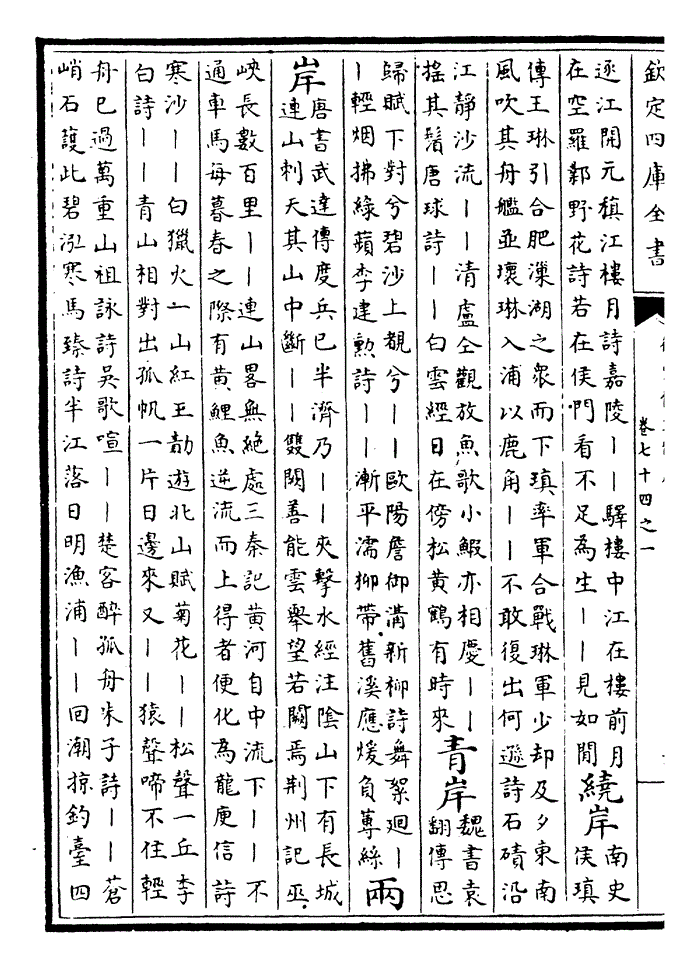 欽定四庫全書
卷七十四之一
逐江開元稹江樓月詩嘉陵丨丨驛樓中江在樓前月
在空羅鄴野花詩若在侯門看不足為生丨丨見如閒
繞岸
南史
侯瑱
傳王琳引合肥漅湖之衆而下瑱率軍合戰琳軍少却及夕東南
風吹其舟艦並壞琳入浦以鹿角丨丨不敢復出何遜詩石磧沿
江靜沙流丨丨清盧仝觀放魚歌小鰕亦相慶丨丨
搖其鬚唐球詩丨丨白雲經日在傍松黄鶴有時來
青岸
魏書袁
翻傳思
歸賦下對兮碧沙上覩兮丨丨歐陽詹御溝新柳詩舞絮廻丨
丨輕烟拂緑蘋李建勲詩丨丨漸平濡柳帶舊溪應煖負蓴絲
兩
岸
唐書武達傳度兵已半濟乃丨丨夾擊水經注陰山下有長城
連山刺天其山中斷丨丨雙闕善能雲舉望若闕焉荆州記巫
峽長數百里丨丨連山畧無絶處三秦記黄河自中流下丨丨不
通車馬每暮春之際有黄鯉魚逆流而上得者便化為龍庾信詩
寒沙丨丨白獵火一山紅王勃遊北山賦菊花丨丨松聲一丘李
白詩丨丨青山相對出孤帆一片日邊來又丨丨猿聲啼不住輕
舟已過萬重山祖詠詩吳歌喧丨丨楚客醉孤舟朱子詩丨丨蒼
峭石護此碧泓寒馬臻詩半江落日明漁浦丨丨回潮掠釣臺四